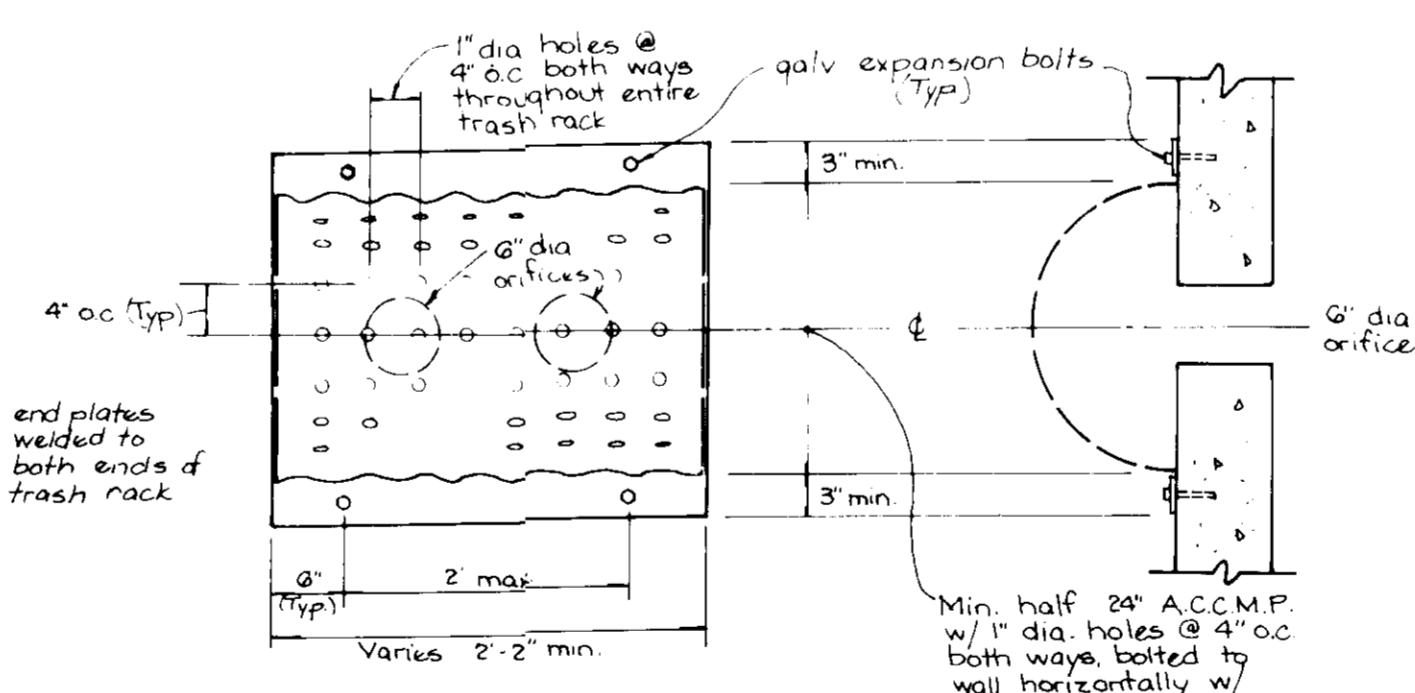 1" dia holes @
4" o.c both ways
throughout entire
trash rack
galv expansion bolts
(Typ)
3" min.
6" dia
orifices
4" o.c (Typ)
℄
6" dia
orifice
end plates
welded to
both ends of
trash rack
3" min.
6"
(Typ.)
2' max
Varies 2'-2" min.
Min. half 24" A.C.C.M.P.
w/ 1" dia. holes @ 4" o.c.
both ways, bolted to
wall horizontally w/